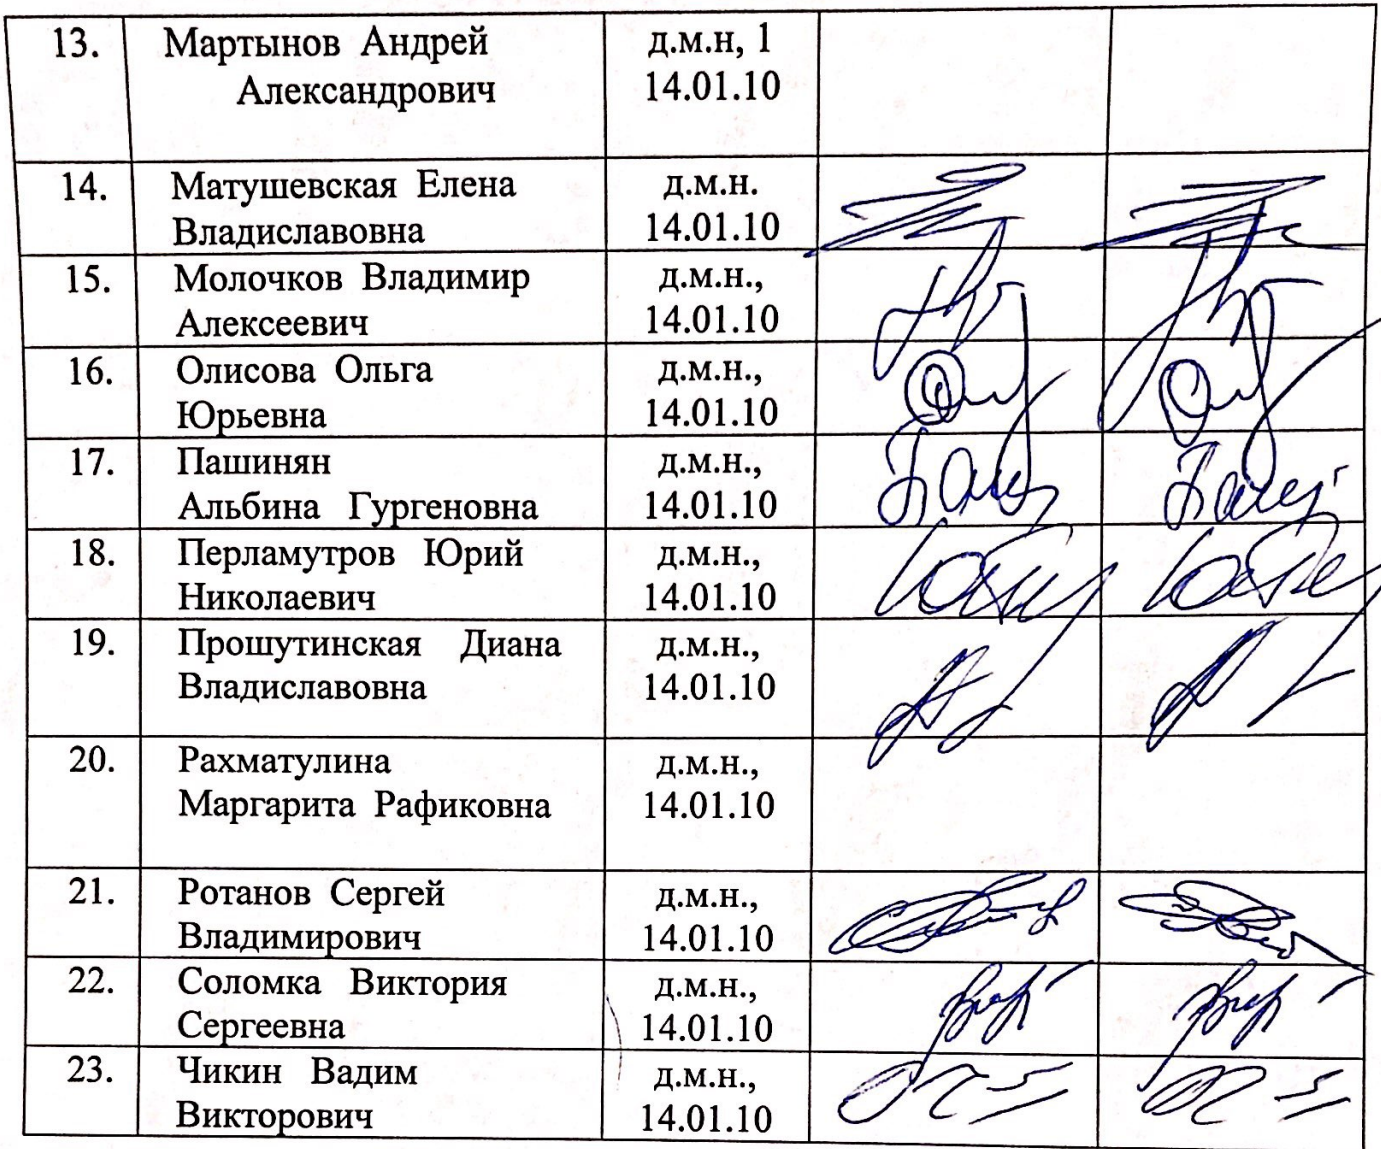 13. Мартынов Андрей д.м.н, 1
Александрович 14.01.10
14. Матушевская Елена д.м.н.
Владиславовна 14.01.10
15. Молочков Владимир д.м.н.,
Алексеевич 14.01.10
16. Олисова Ольга д.м.н.,
Юрьевна 14.01.10
17. Пашинян д.м.н.,
Альбина Гургеновна 14.01.10
18. Перламутров Юрий д.м.н.,
Николаевич 14.01.10
19. Прошутинская Диана д.м.н.,
Владиславовна 14.01.10
20. Рахматулина д.м.н.,
Маргарита Рафиковна 14.01.10
21. Ротанов Сергей д.м.н.,
Владимирович 14.01.10
22. Соломка Виктория д.м.н.,
Сергеевна 14.01.10
23. Чикин Вадим д.м.н.,
Викторович 14.01.10